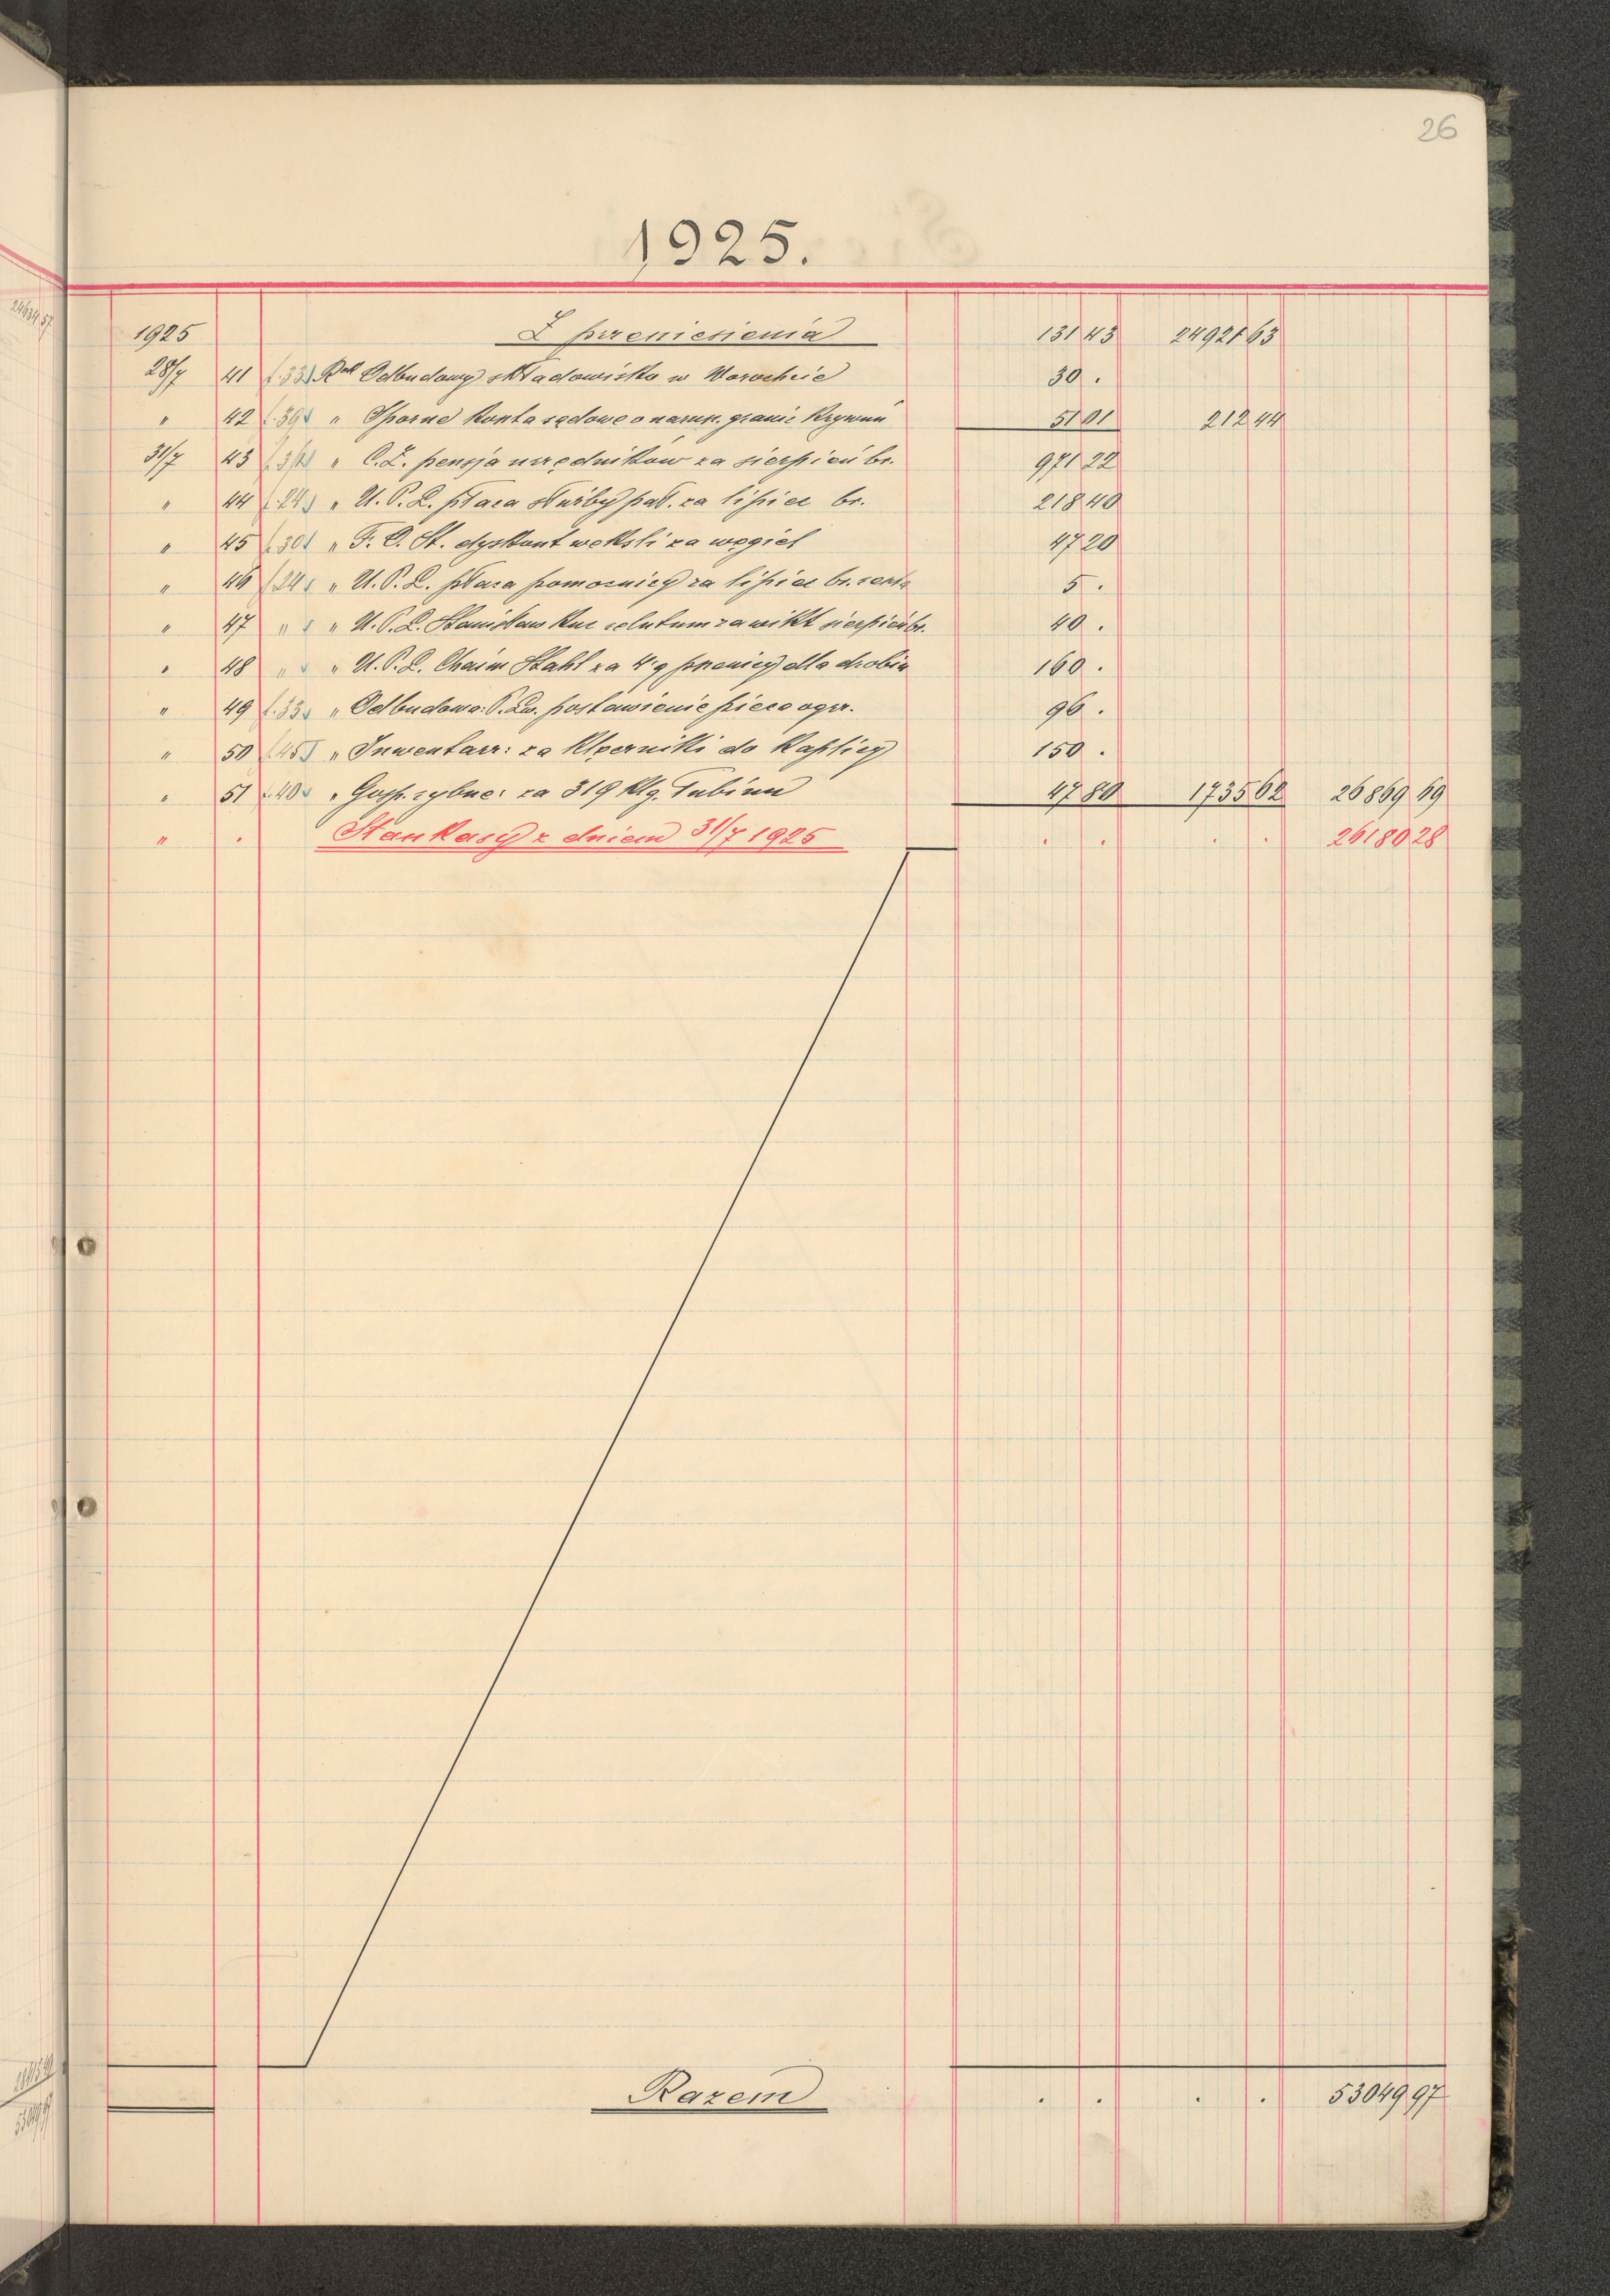 26
1925.
1925 Z przeniesienia 131 43 24921 63
28/7 41 f. 33 Rek Odbudowy składowisko w Worochcie 30 .
" 42 " Sporne konta sądowe o narusz. granic 51 01 212 44
31/7 43 " C. Z. pensja urzędników za sierpień br. 971 22
" 44 f. 24 " U. P. L. płaca służby pał. za lipiec br. 218 40
" 45 f. 30 " F. C. St. dyskont weksli za węgiel 47 20
" 46 f. 24 " U. P. L. płaca pomocnicy za lipiec br. 5 .
" 47 " " U. P. L. Stanisław relutum za wikt sierpień br. 40 .
" 48 " " U. P. L. Chaim Stahl za 4 q pszenicy dla drobiu 160 .
" 49 f. 33 " Odbudowa: P. Lw. postawienie pieca ogrz. 96 .
" 50 f. 45 " Inwentarz: za klęczniki do kaplicy 150 .
" 51 f. 40 " Gosp. rybne: za 319 klg. łubinu 47 80 1735 62 26869 69
" . Stan kasy z dniem 31/7 1925 . . . . 26180 28
Razem . . . . 53049 97